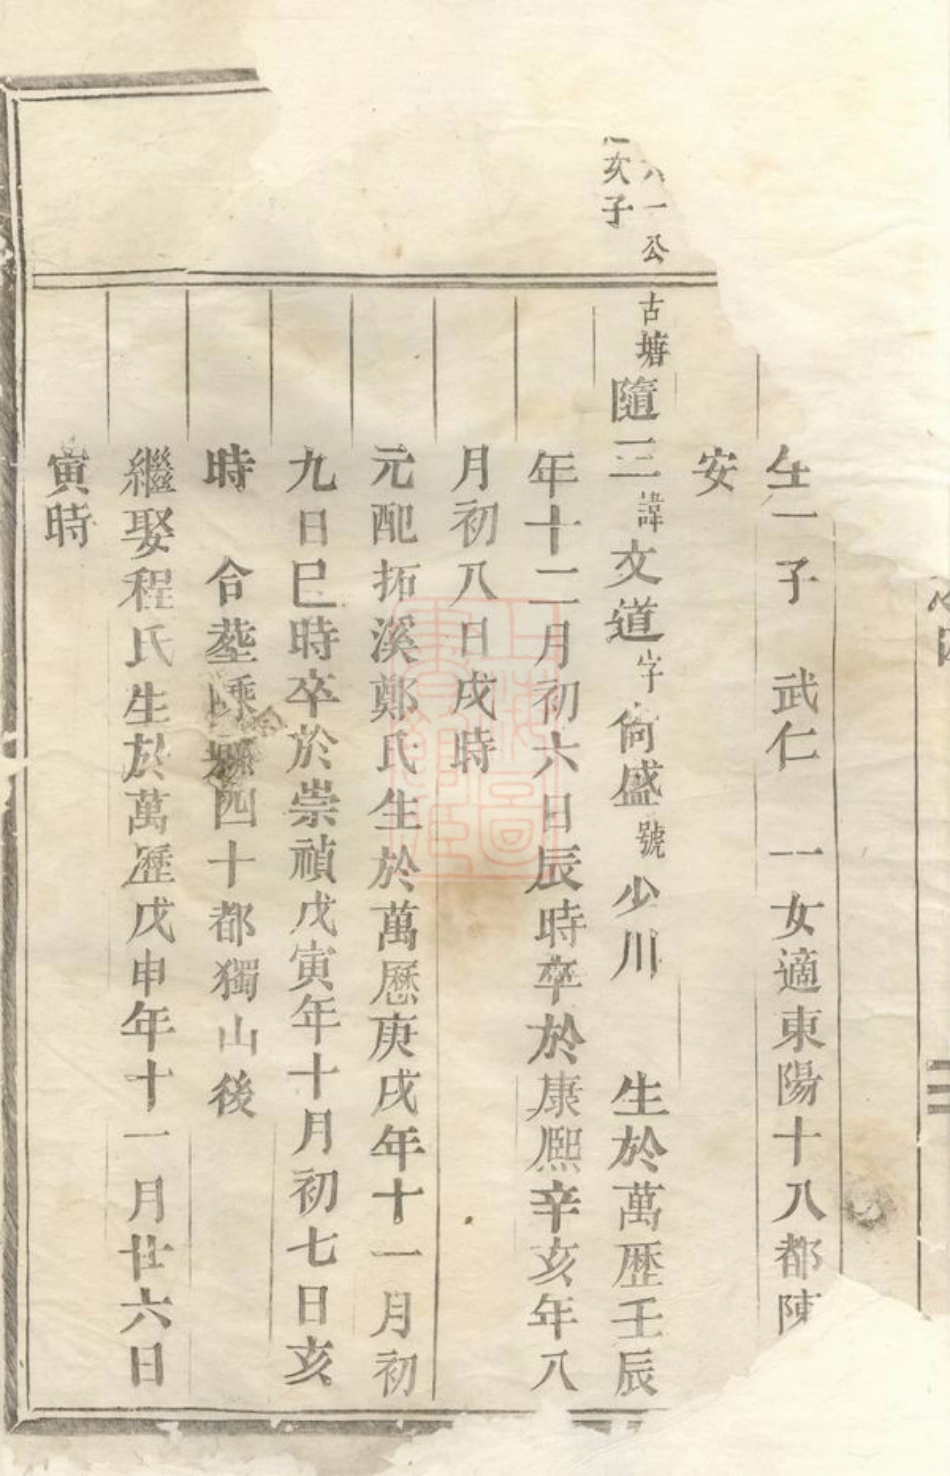 生一子 武仁 一女適東陽十八都陳
安
一公
次子
古塘
隨三諱文道字尙盛號少川 生於萬歷壬辰
年十二月初六日辰時卒於康熙辛亥年八
月初八日戌時
元配拓溪鄭氏生於萬歷庚戌年十一月初
九日巳時卒於崇禎戊寅年十月初七日亥
時 合塟 四十都獨山後
繼娶程氏生於萬歷戊申年十一月廿六日
寅時